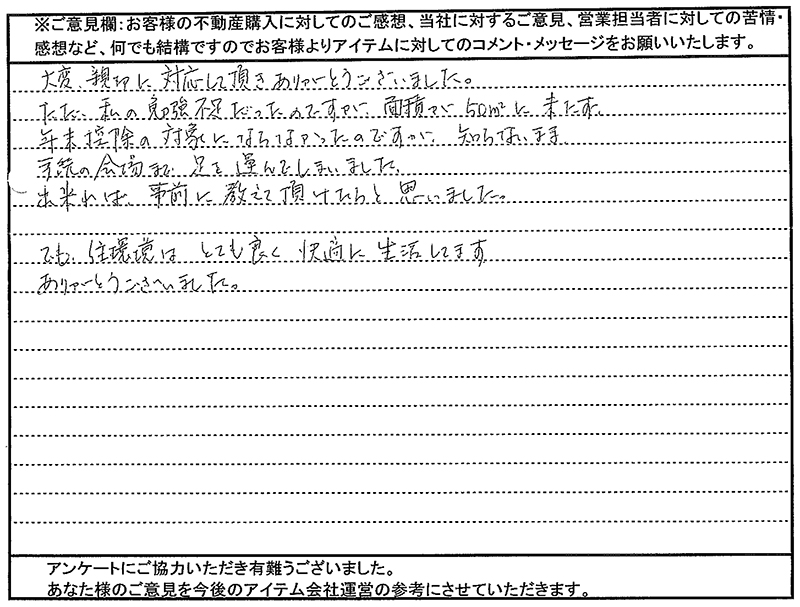 ※ご意見欄:お客様の不動産購入に対してのご感想、当社に対するご意見、営業担当者に対しての苦情・
感想など、何でも結構ですのでお客様よりアイテムに対してのコメント・メッセージをお願いいたします。
大変、親切に対応して頂きありがとうございました。
ただ、私の勉強不足だったのですが、面積が50㎡に未たず、
年末控除の対象にならなかったのですが、知らないまま
手続の会場まで足を運んでしまいました。
出来れば、事前に教えて頂けたらと思いました。
でも、住環境はとても良く快適に生活してます
ありがとうございました。
アンケートにご協力いただき有難うございました。
あなた様のご意見を今後のアイテム会社運営の参考にさせていただきます。